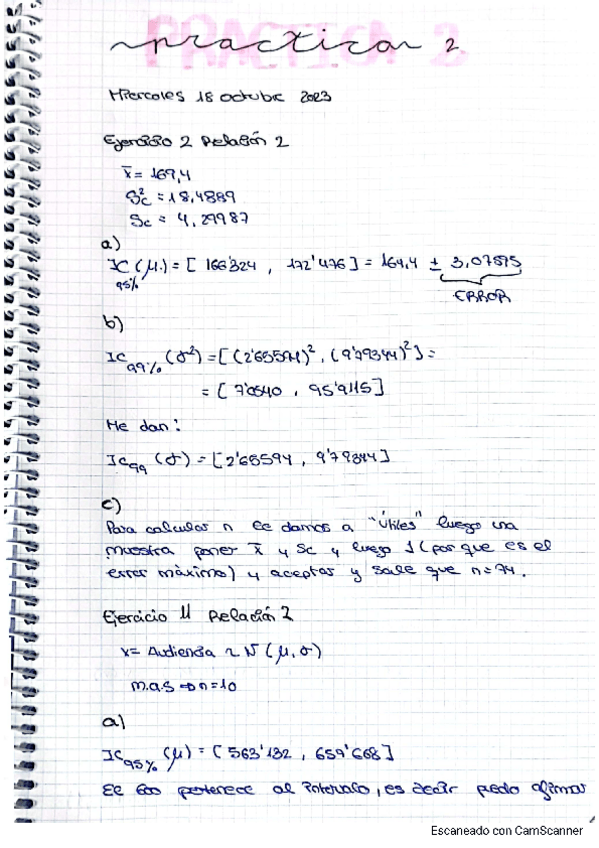 PRACTICA 2
practica 2
Miercoles 18 octubre 2023
Ejercicio 2 Relación 2
x̄ = 169,4
Sc² = 18,4889
Sc = 4,29987
a)
IC 95% (μ) = [ 166'324 , 172'476 ] = 164,4 ± 3,07595
ERROR
b)
IC 99% (σ²) = [ (2'65594)² , (9'79344)² ] =
= [ 7'0540 , 95'9115 ]
Me dan:
IC99 (σ) = [ 2'65594 , 9'79344 ]
c)
Para calcular n le damos a "Útiles" luego una
muestra poner x̄ y Sc y luego 1 (por que es el
error máximo) y aceptar y sale que n=74.
Ejercicio 11 Relación 2
X = Audiencia ~ N (μ, σ)
m.a.s => n=10
a)
IC 95% (μ) = [ 563'132 , 659'668 ]
El 600 pertenece al intervalo, es decir puedo afirmar
Escaneado con CamScanner